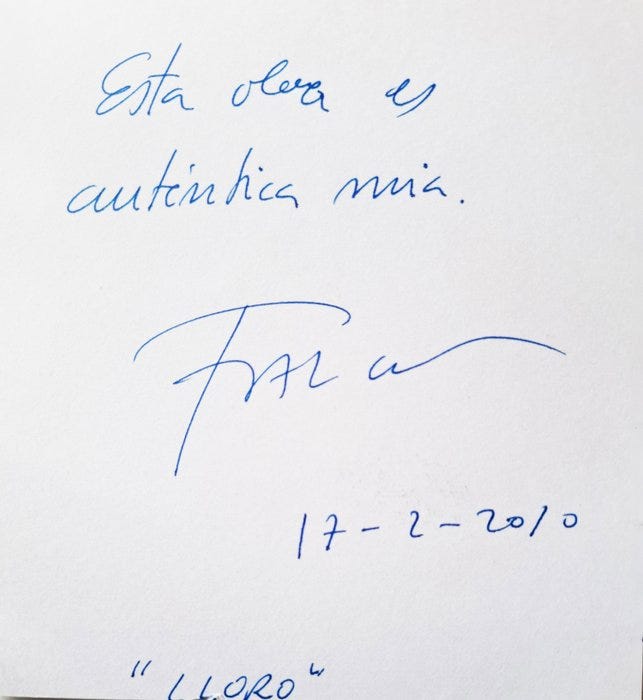 Esta obra es
auténtica mia.
17-2-2010
"LLORO"